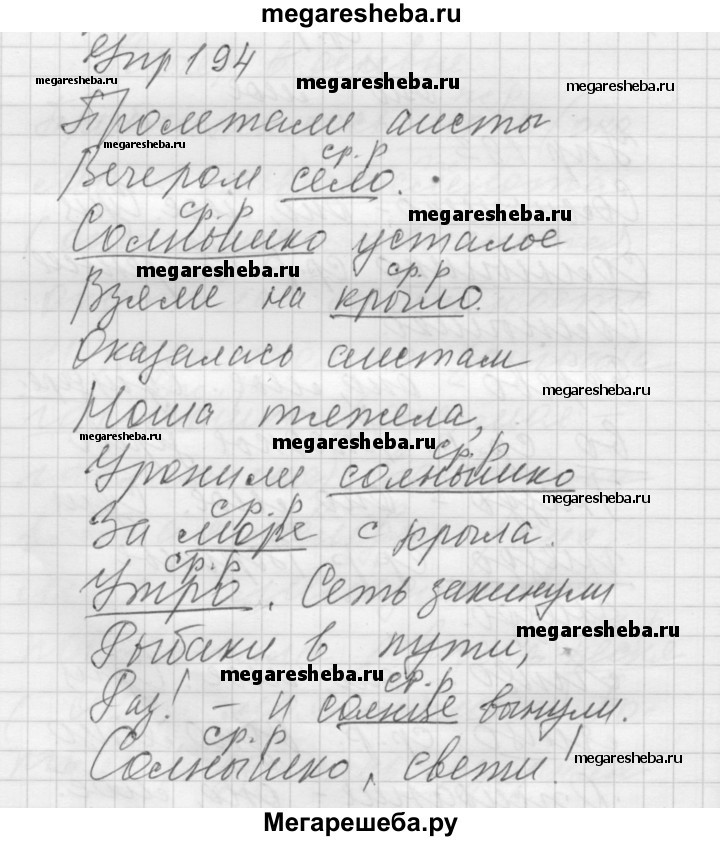 megaresheba.ru
Упр 194
megaresheba.ru
megaresheba.ru
Пролетали аисты
megaresheba.ru
ср. р
Вечером село.
ср. р
megaresheba.ru
Солнышко усталое
megaresheba.ru
ср. р
Взяли на крыло.
Оказалась аистам
megaresheba.ru
Ноша тяжела,
megaresheba.ru
megaresheba.ru
ср. р
Уронили солнышко
megaresheba.ru
ср. р
За море с крыла.
ср. р
Утро. Сеть закинули
megaresheba.ru
Рыбаки в пути,
megaresheba.ru
ср. р
Раз! – и солнце вынули.
ср. р
Солнышко, свети!
megaresheba.ru
Мегарешеба.ру